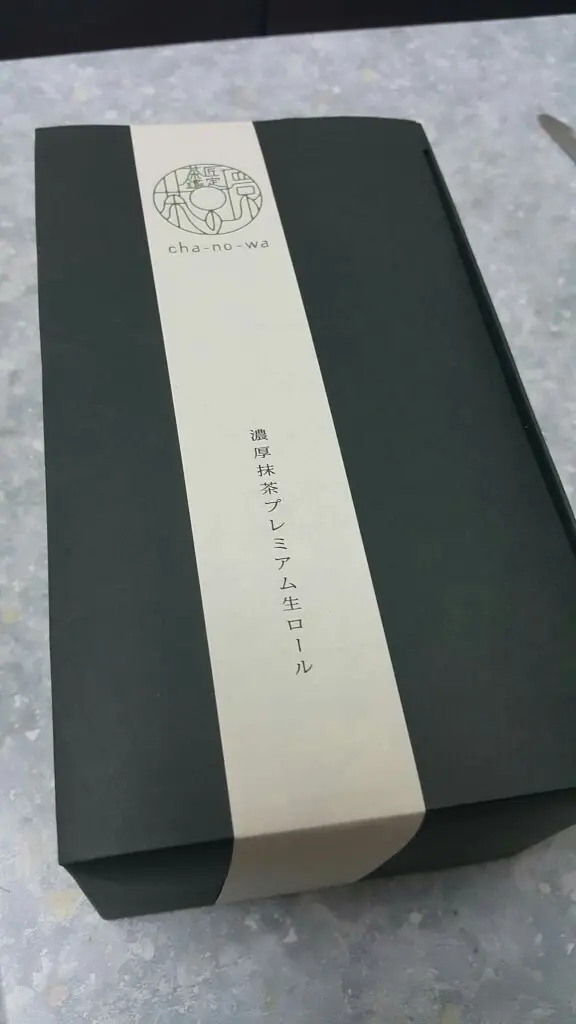 茶匠
鑑定
茶の環
cha-no-wa
濃厚抹茶プレミアム生ロール